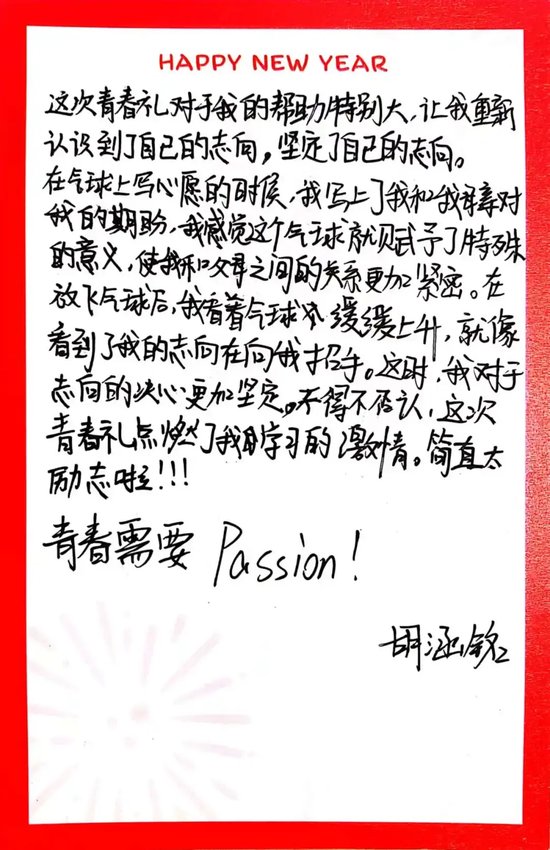 HAPPY NEW YEAR
这次青春礼对于我的帮助特别大,让我重新
认识到了自己的志向,坚定了自己的志向。
在气球上写心愿的时候,我写上了我和我母亲对
我的期盼,我感觉这个气球就贝武予了特殊
的意义,使我和父母之间的关系更加紧密。在
放飞气球后,我看着气球缓缓上升,就像
看到了我的志向在向我招手。这时,我对于
志向的决心更加坚定。不得不否认,这次
青春礼点燃了我学习的激情。简直太
励志啦!!!
青春需要 Passion!
胡涵铭